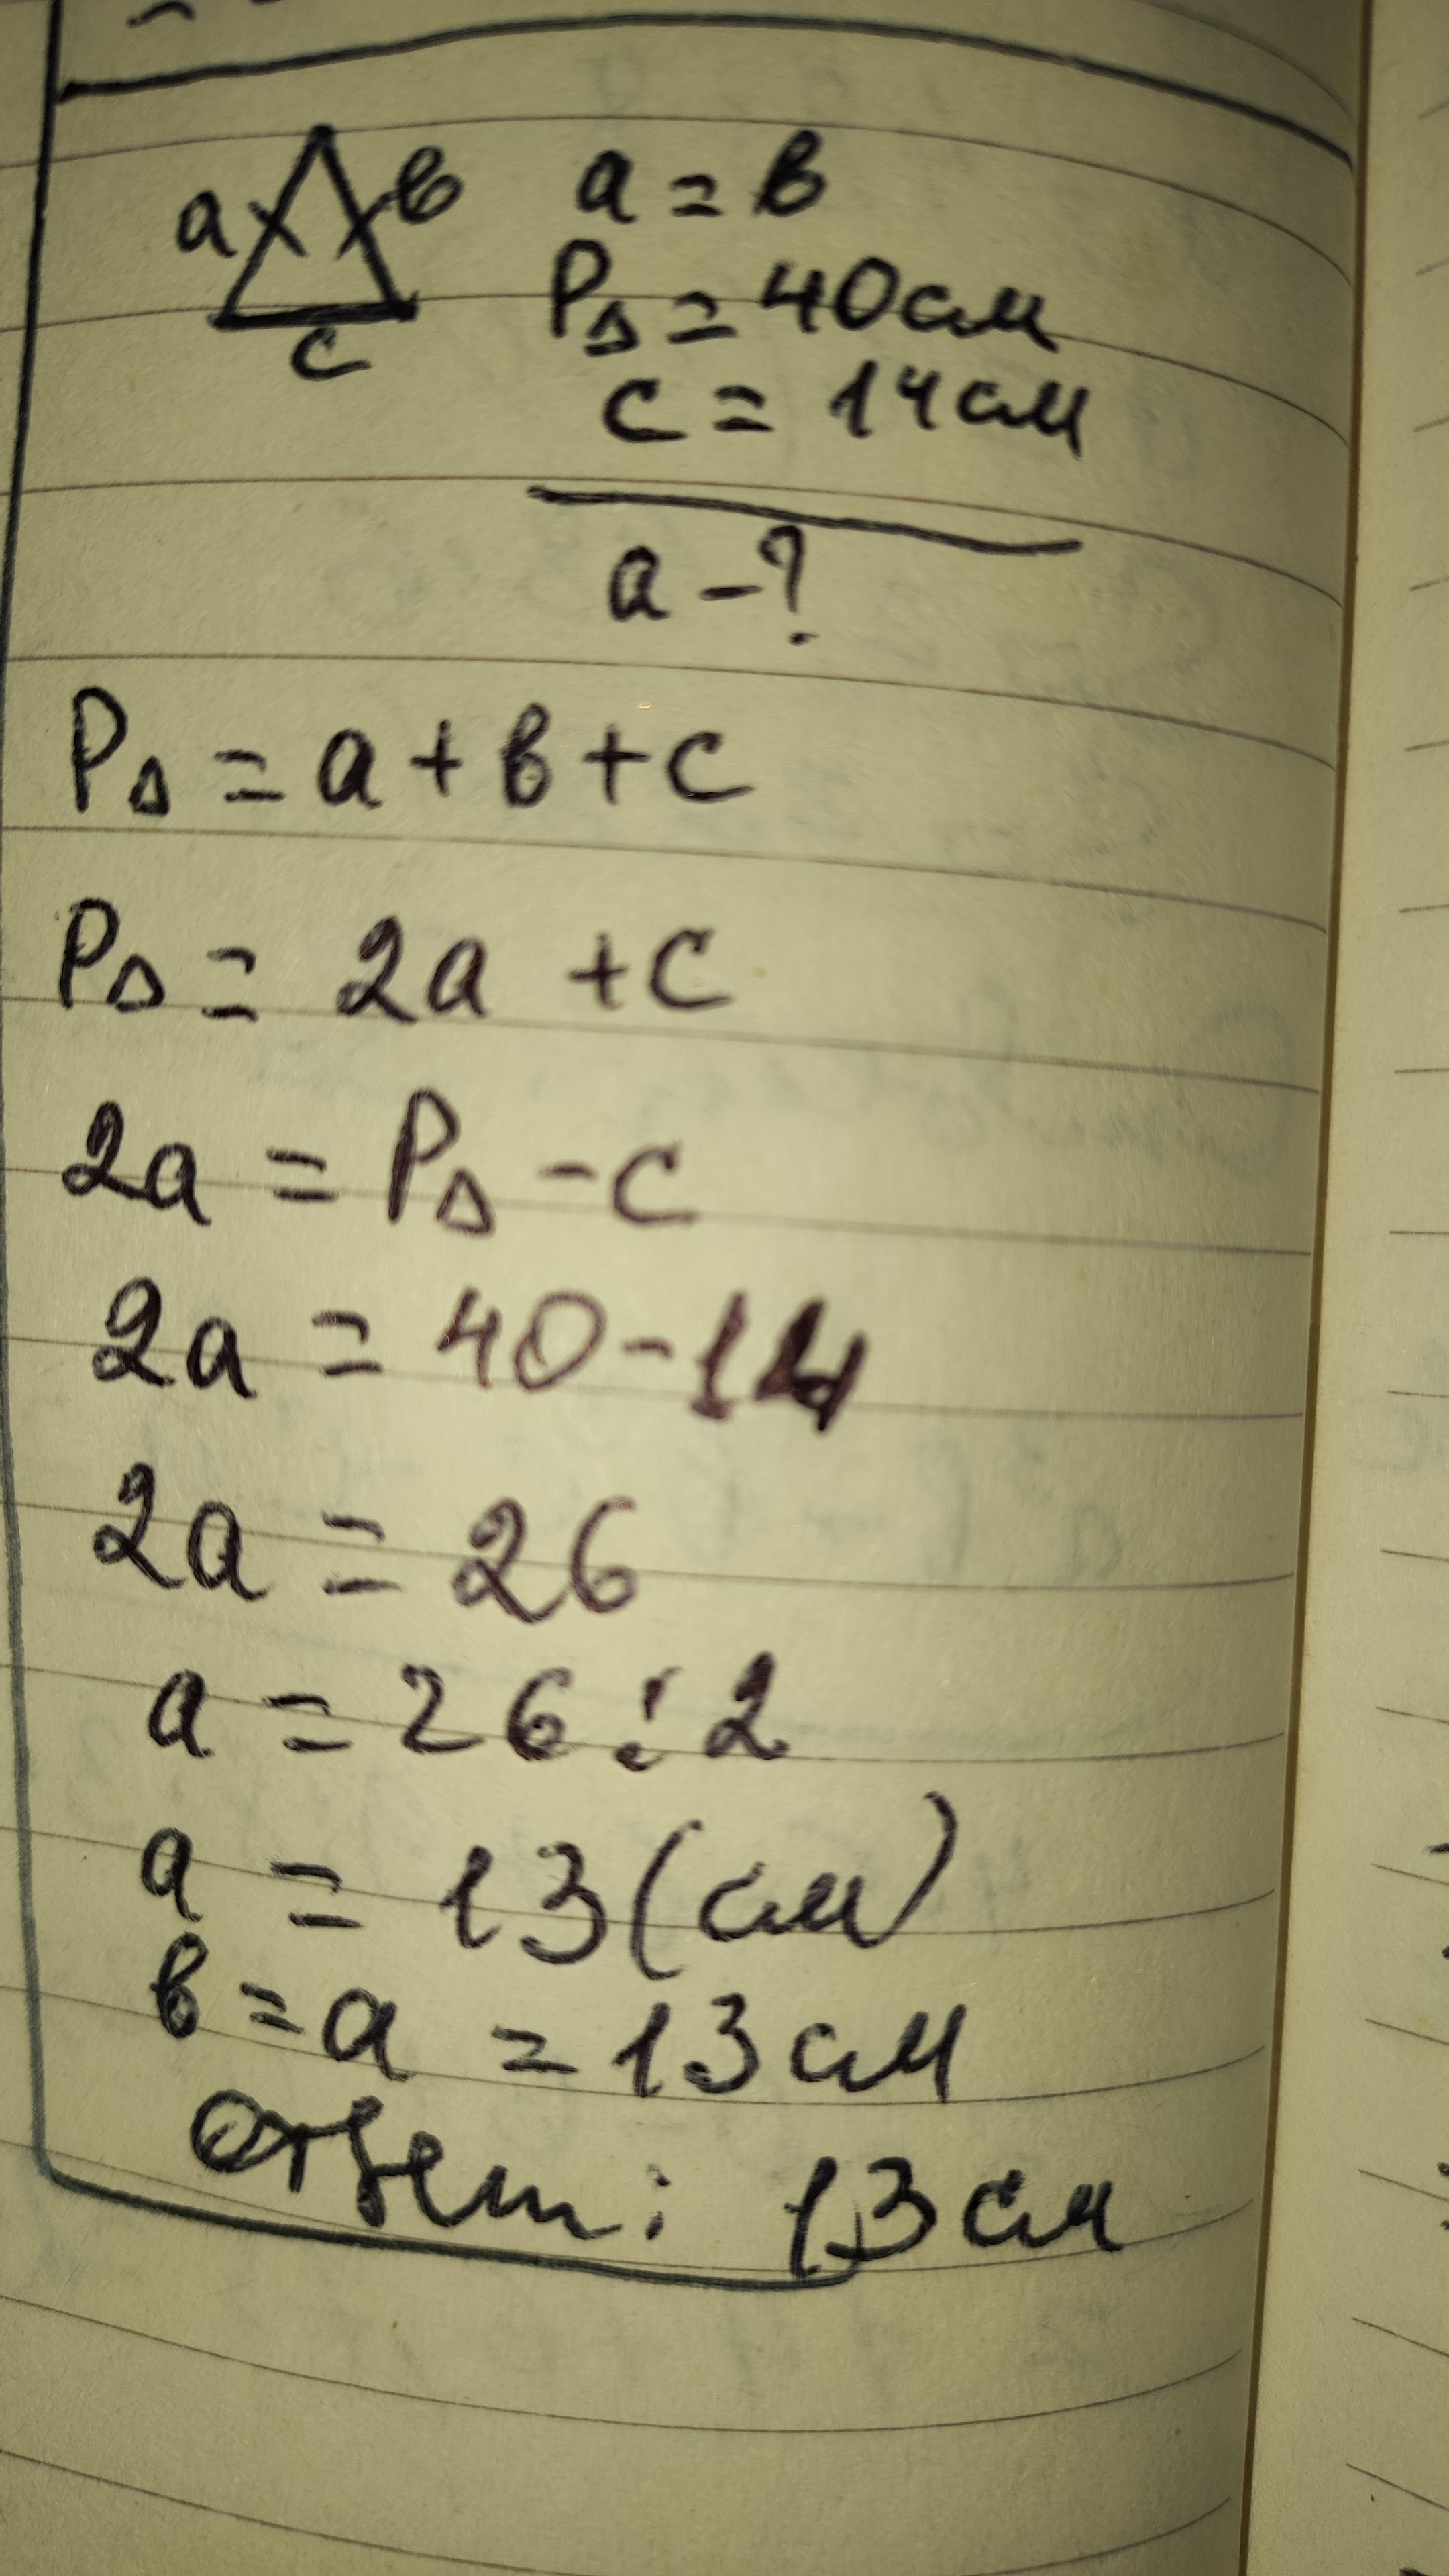 a в a = в
P∆ = 40см
c c = 14см
a - ?
P∆ = a + в + c
P∆ = 2a + c
2a = P∆ - c
2a = 40 - 14
2a = 26
a = 26 : 2
a = 13 (см)
в = a = 13 см
Ответ: 13 см